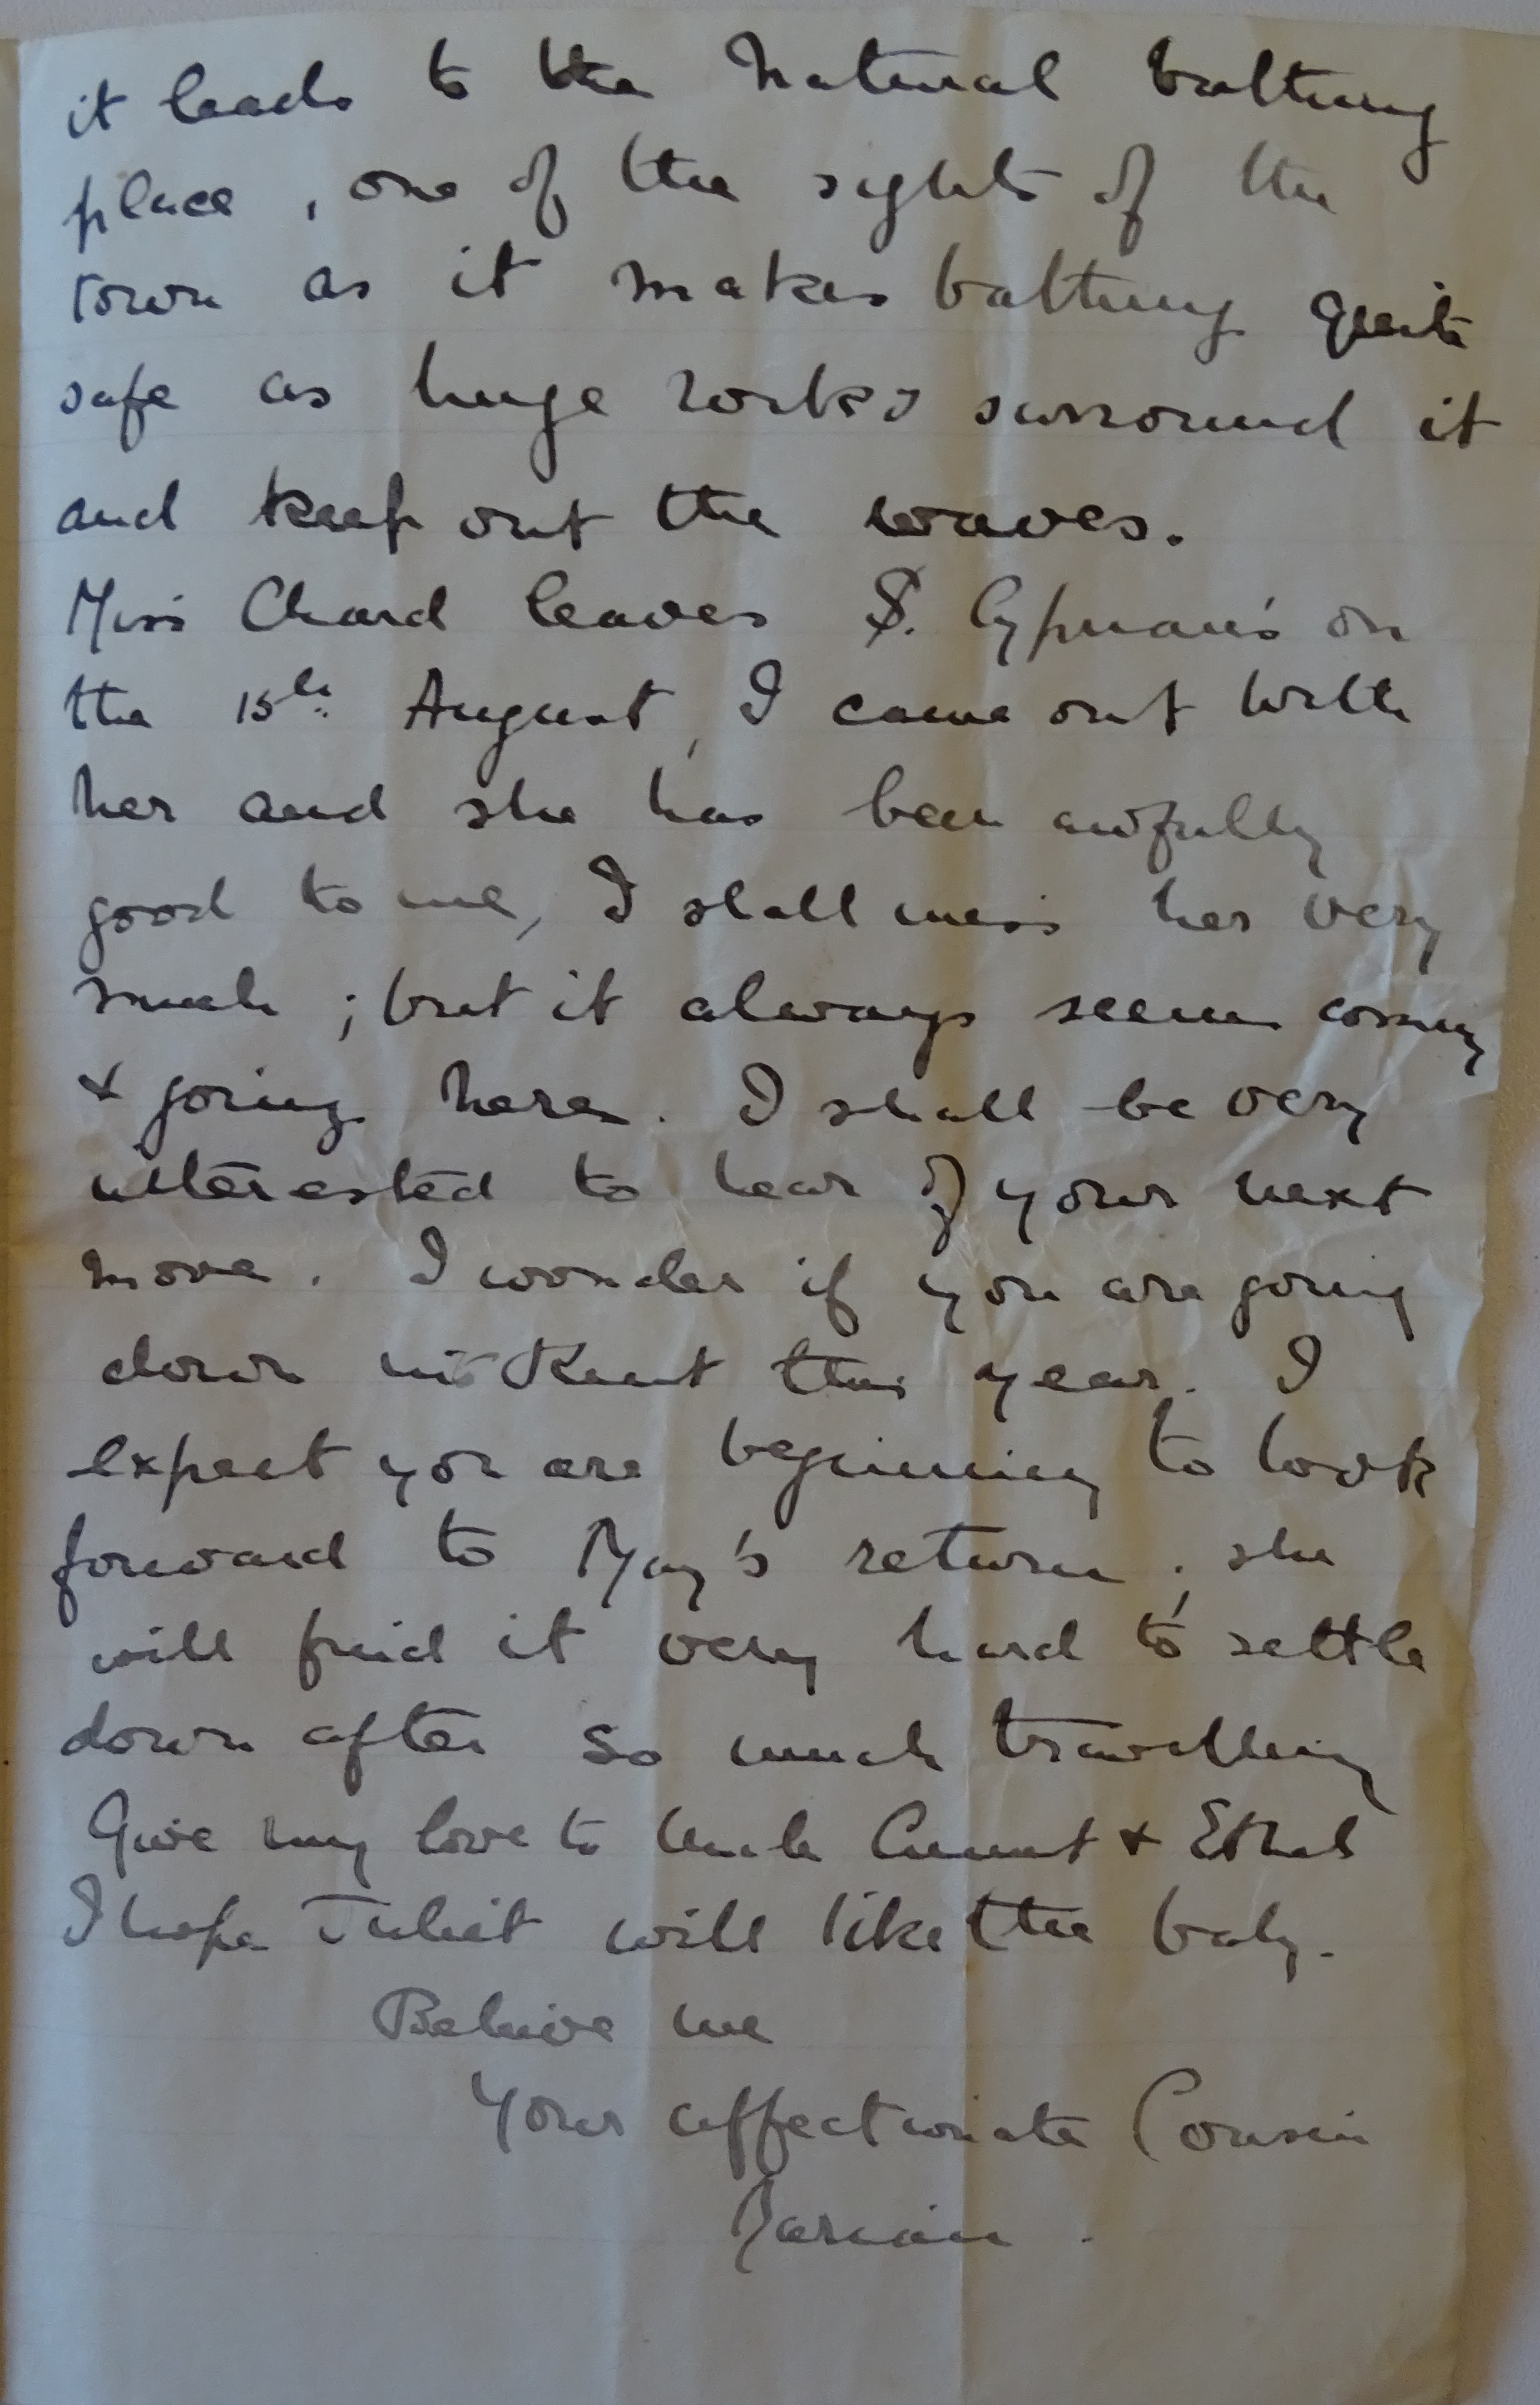 it leads to the natural bathing
place, one of the sights of the
town as it makes bathing quite
safe as huge rocks surround it
and keep out the waves.
Miss Chard leaves S. Cyprian's on
the 15th August, I came out with
her and she has been awfully
good to me, I shall miss her very
much; but it always seems coming
& going here. I shall be very
interested to hear of your next
move. I wonder if you are going
down into Kent this year. I
expect you are beginning to look
forward to May's return; she
will find it very hard to settle
down after so much travelling
Give my love to Uncle Aunt & Ethel
I hope Juliet will like the baby.
Believe me
Your affectionate Cousin